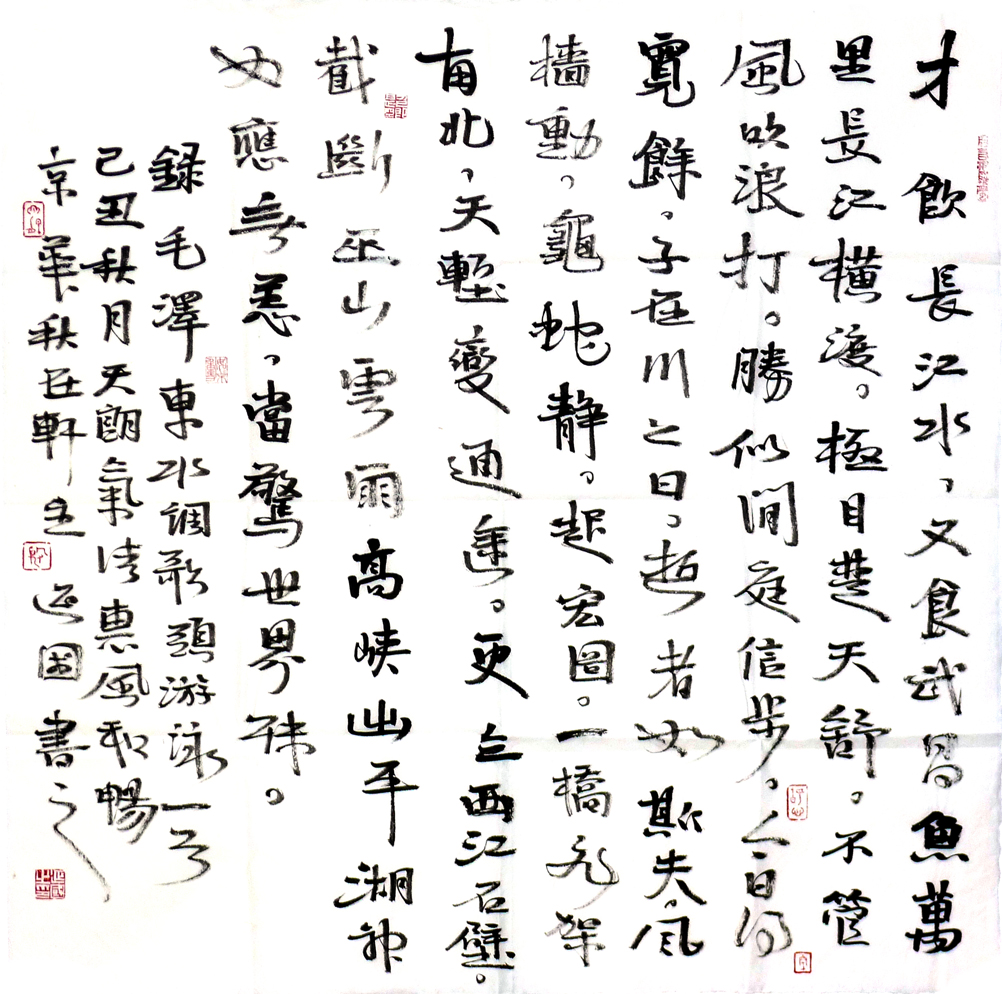 才飲長江水，又食武昌魚萬
里長江橫渡。極目楚天舒。不管
風吹浪打。勝似閒庭信步。今日得
寬餘。子在川上曰。逝者如斯夫。風
檣動。龜蛇靜。起宏圖。一橋飛架
南北，天塹變通途。更立西江石壁。
截斷巫山雲雨高峽出平湖神
女應無恙，當驚世界殊。
録毛澤東水調歌頭游泳一首
己丑秋月天朗氣清惠風和暢
京華秋在軒主國書之